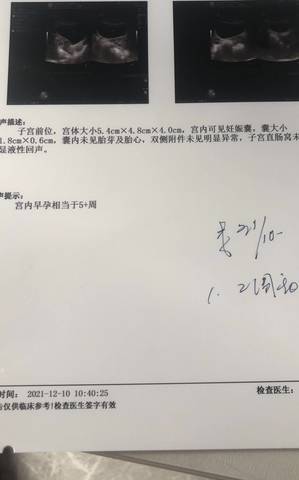 声描述:
子宫前位，宫体大小5.4cm×4.8cm×4.0cm，宫内可见妊娠囊，囊大小
1.8cm×0.6cm，囊内未见胎芽及胎心，双侧附件未见明显异常，子宫直肠窝未
显液性回声。
声提示:
宫内早孕相当于5+周
末 21/10
1. 2周
时间： 2021-12-10 10:40:25
检查医生:
告仅供临床参考!检查医生签字有效